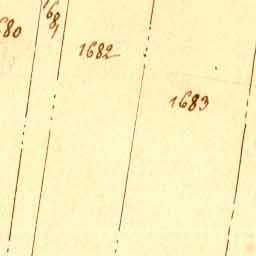 680
1681
1682
1683